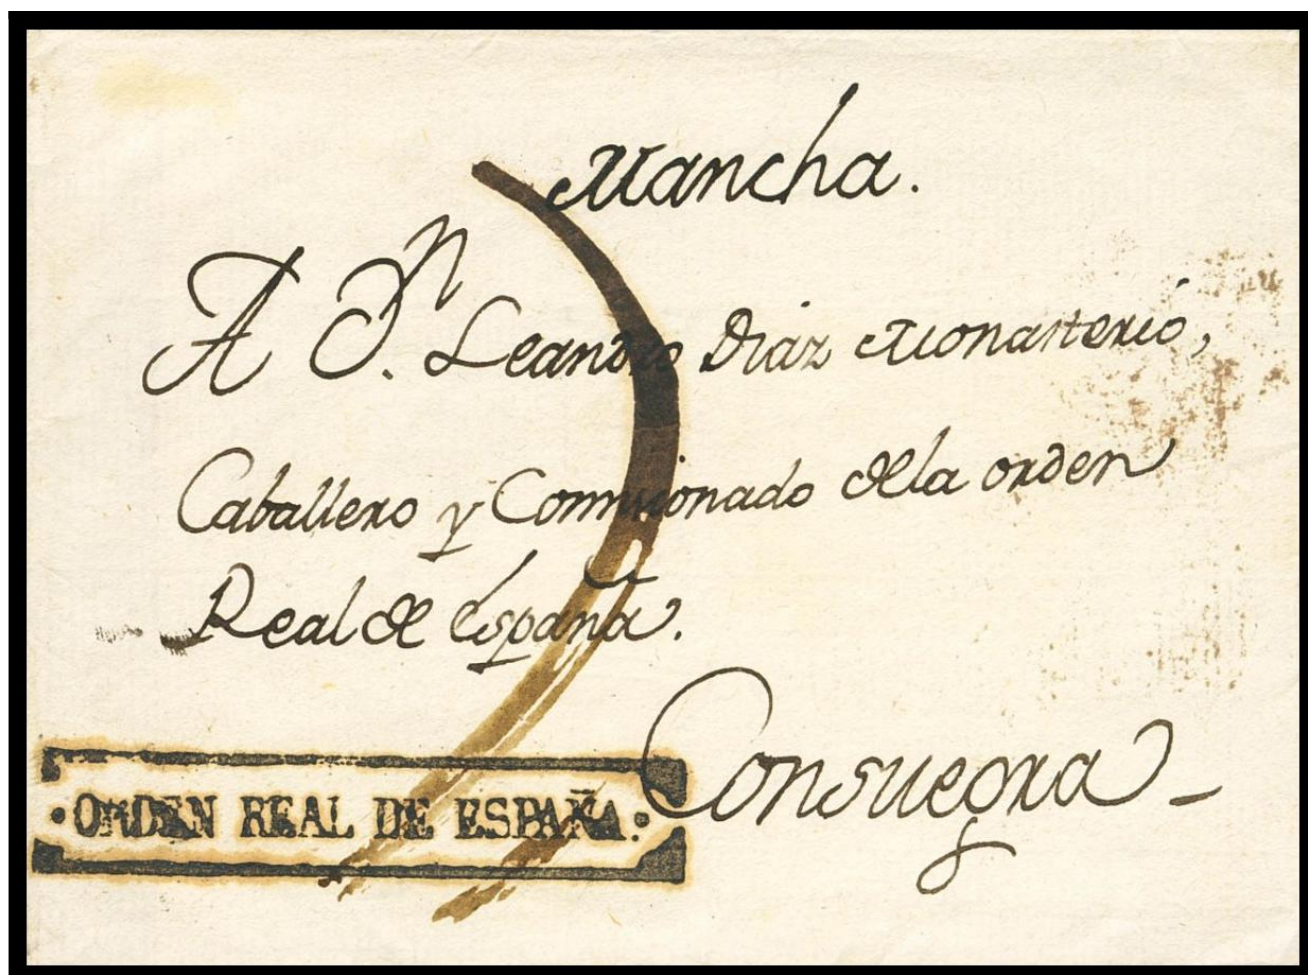 Mancha.
A Dn. Leandro Diaz Monasterio,
Caballero y Comisionado de la orden
Real de España.
Consuegra
·ORDEN REAL DE ESPAÑA·